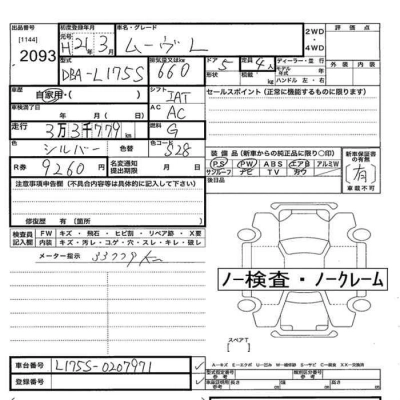 出品番号 初度登録年月 車名・グレード 評価点
[1144] 元号 H 21年 3月 ムーヴ L 2WD・4WD
2093 型式 排気量又は kW ドア 定員 ディーラー・並行 外装 内装
DBA-L175S 660 5 4人 モデル年式 ハンドル 左・右
車歴 自家用・ シフト IAT セールスポイント(正常に機能するものに限ります)
車検満了日 年 月 日 AC AC
走行 3万3千779km 燃料 G
色 シルバー 色替 色コード S28
R券 9260円 名変通知提出期限 装備品(新車からの純正品に限り○印) 新車保証書の有無
PS PW ABS エアB アルミW
サンルーフ ナビ TV カワ
注意事項申告欄(不具合内容等は具体的に記入して下さい) 後日品 有 車載不可
修復歴 有(箇所 )
検査員記入欄 FW キズ・飛石・ヒビ割・リペア跡・X要
内装 キズ・汚レ・コゲ・穴・スレ・キレ・破レ
メーター指示 33779Km
ノー検査・ノークレーム
スペアT
車台番号 L175S-0207971
登録番号 型式指定番号 類別区分番号
長さ cm 幅 cm 高さ cm